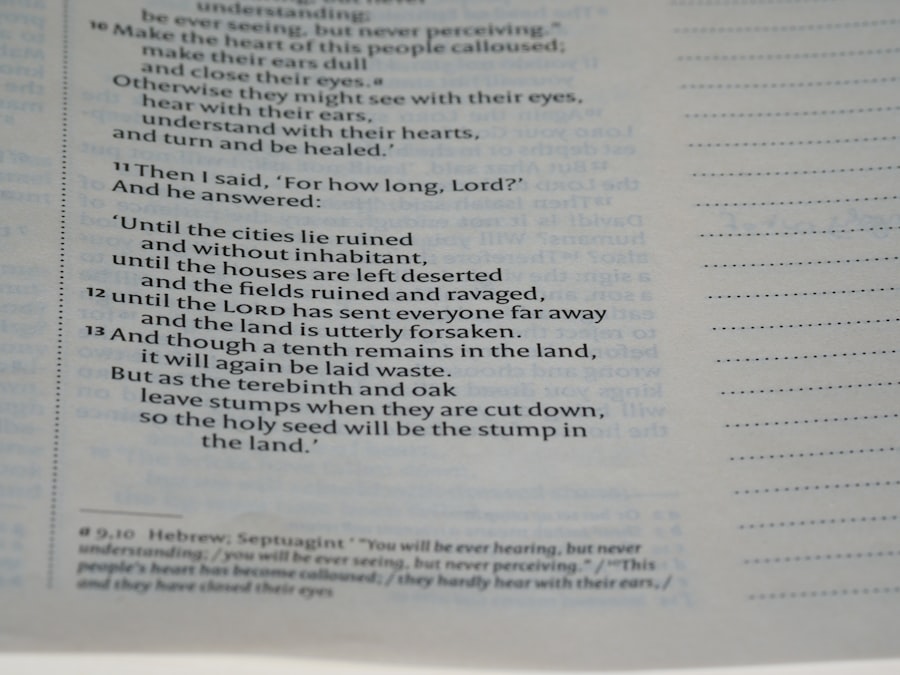 understanding;
be ever seeing, but never perceiving."
10 Make the heart of this people calloused;
make their ears dull
and close their eyes.a
Otherwise they might see with their eyes,
hear with their ears,
understand with their hearts,
and turn and be healed.'
11 Then I said, 'For how long, Lord?'
And he answered:
'Until the cities lie ruined
and without inhabitant,
until the houses are left deserted
and the fields ruined and ravaged,
12 until the LORD has sent everyone far away
and the land is utterly forsaken.
13 And though a tenth remains in the land,
it will again be laid waste.
But as the terebinth and oak
leave stumps when they are cut down,
so the holy seed will be the stump in
the land.'
a 9,10 Hebrew; Septuagint ' "You will be ever hearing, but never
understanding; / you will be ever seeing, but never perceiving." / 10 This
people's heart has become calloused; / they hardly hear with their ears, /
and they have closed their eyes